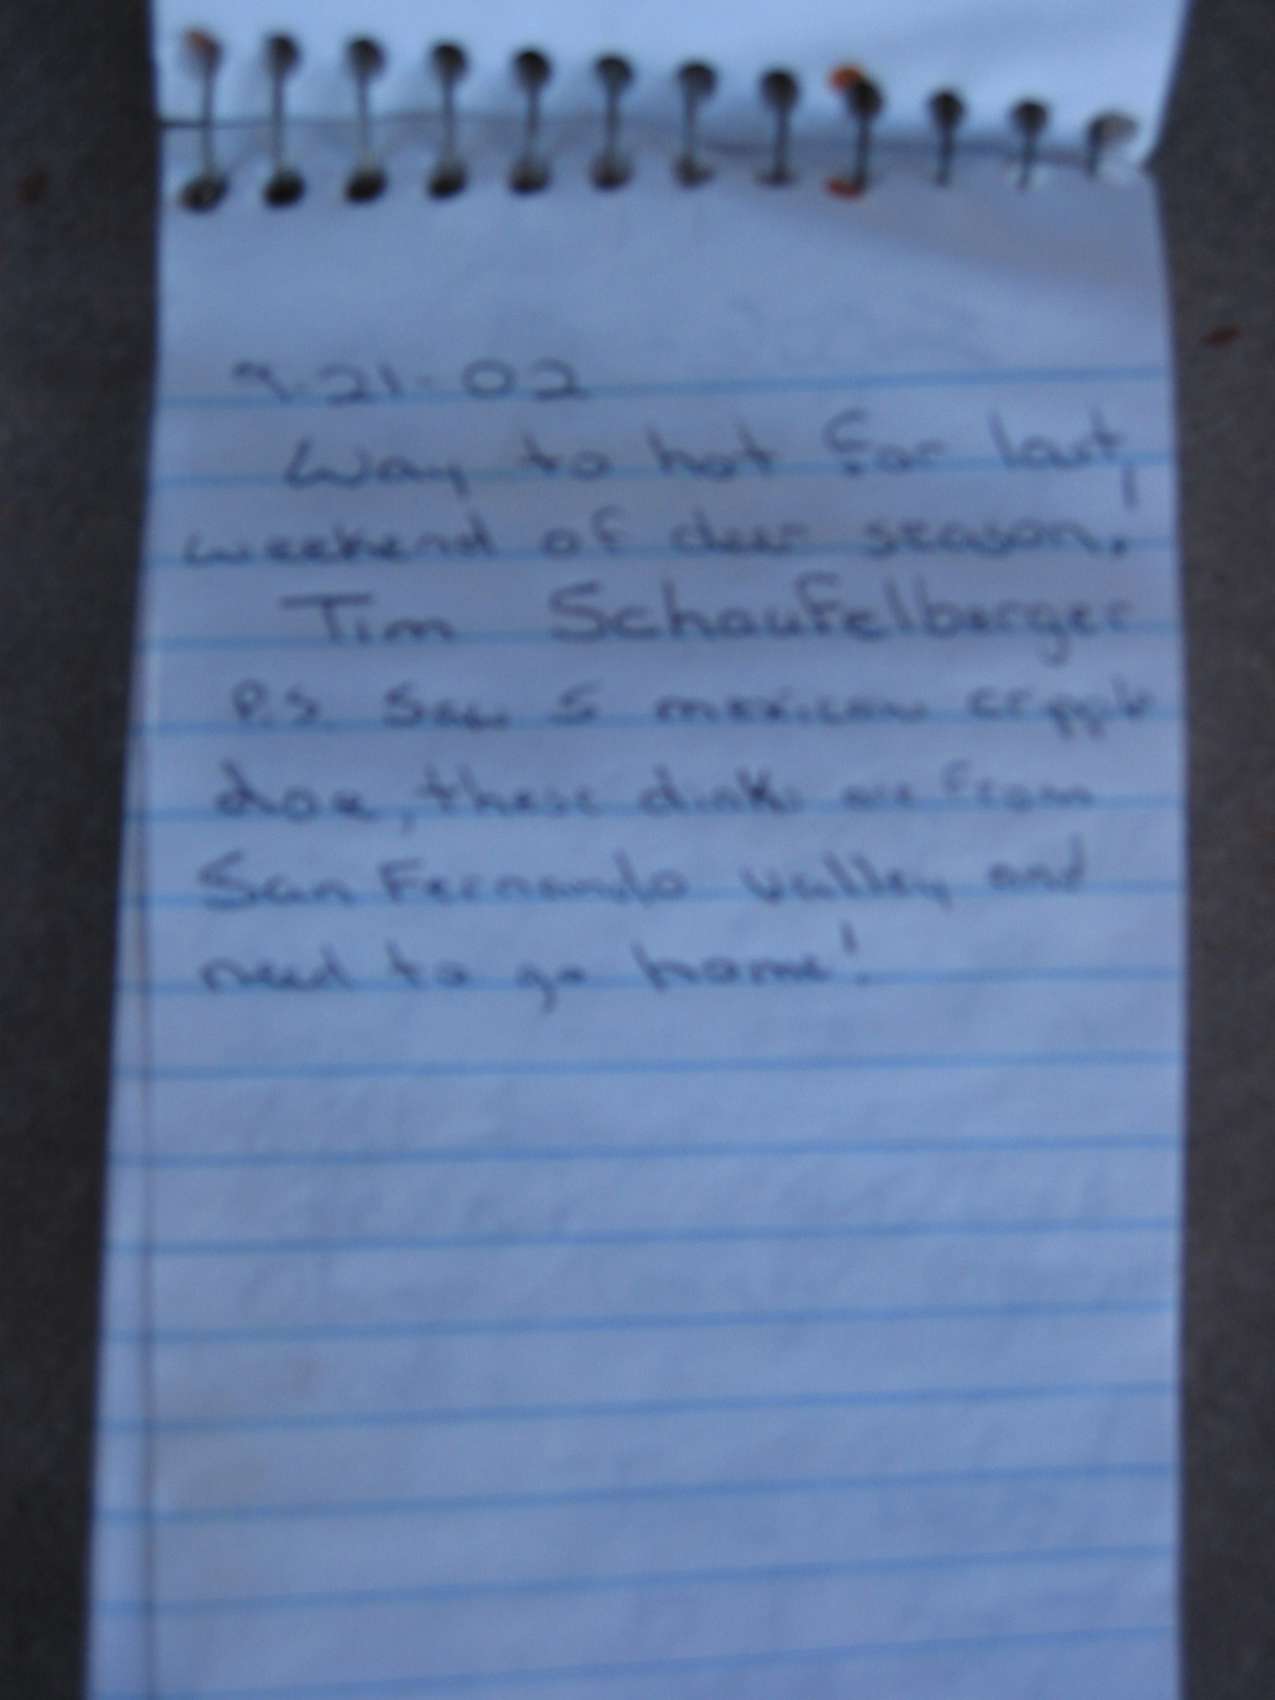 9-21-02
Way to hot for last
weekend of deer season!
Tim Schaufelberger
P.S. Saw 5 mexicans cripple
doe, these dinks are from
San Fernando valley and
need to go home!